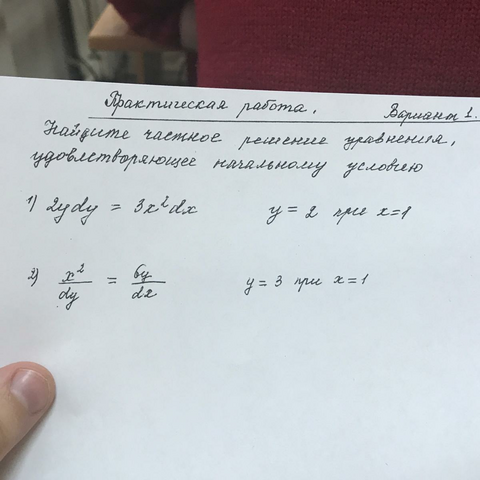 Практическая работа. Вариант 1.
Найдите частное решение уравнения,
удовлетворяющее начальному условию
1) 2ydy = 3x²dx y = 2 при x=1
2) x²/dy = 6y/dx y = 3 при x=1